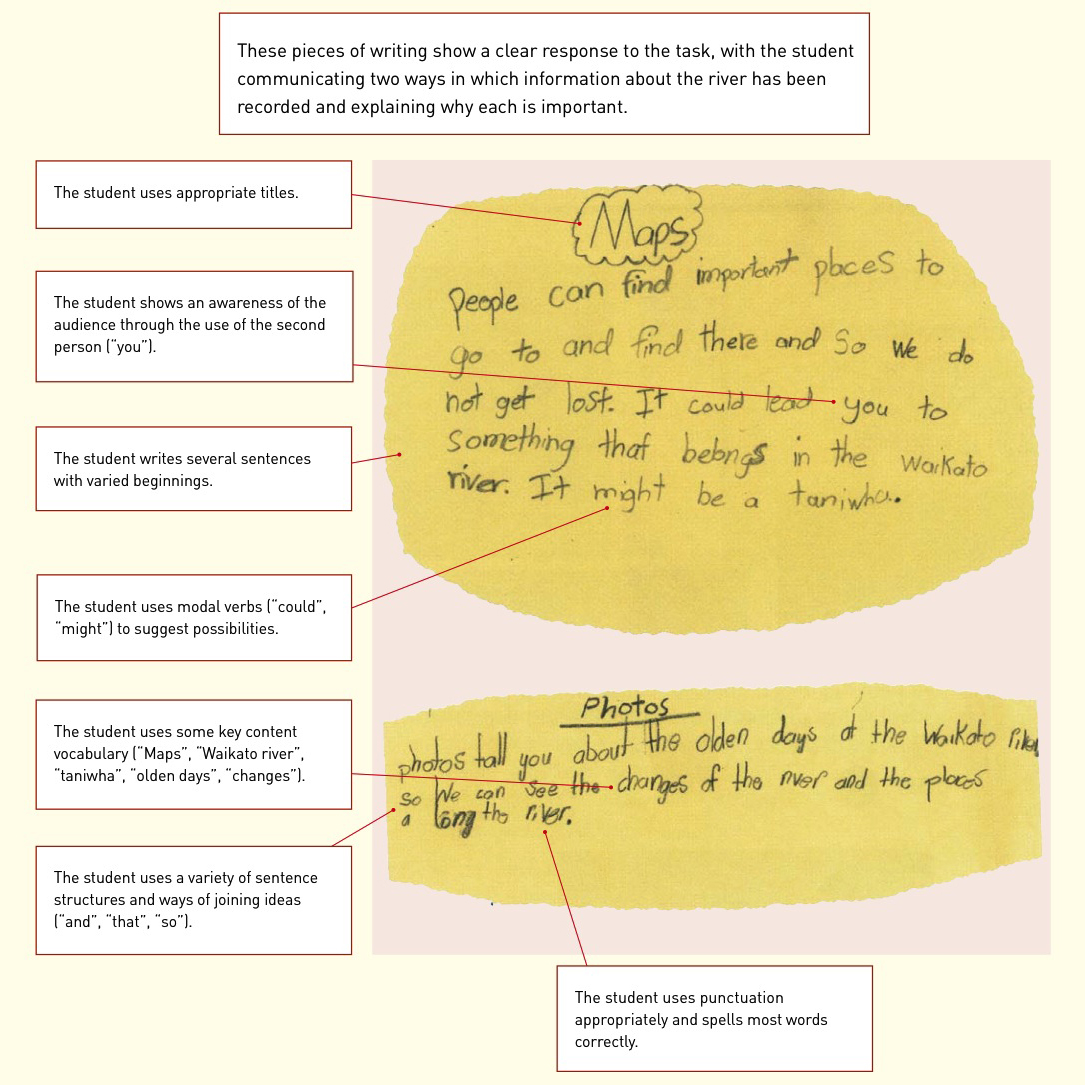 These pieces of writing show a clear response to the task, with the student
communicating two ways in which information about the river has been
recorded and explaining why each is important.
The student uses appropriate titles.
The student shows an awareness of the
audience through the use of the second
person (“you”).
The student writes several sentences
with varied beginnings.
The student uses modal verbs (“could”,
“might”) to suggest possibilities.
The student uses some key content
vocabulary (“Maps”, “Waikato river”,
“taniwha”, “olden days”, “changes”).
The student uses a variety of sentence
structures and ways of joining ideas
(“and”, “that”, “so”).
Maps
People can find important places to
go to and find there and So We do
not get lost. It could lead you to
Something that belongs in the Waikato
river. It might be a taniwha.
Photos
photos tall you about the olden days at the Waikato River
so We can see the changes of the river and the places
a long the river.
The student uses punctuation
appropriately and spells most words
correctly.